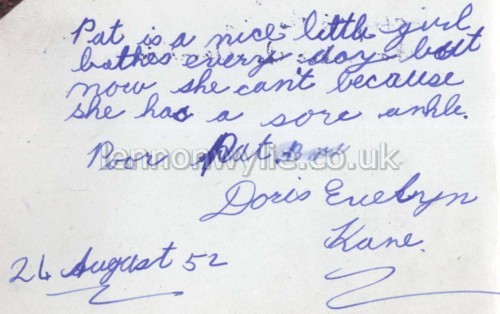 Pat is a nice little girl
bathes every day but
now she can't because
she has a sore ankle.
Poor Pat
lennonwylie.co.uk
Doris Evelyn
Kane.
24 August 52